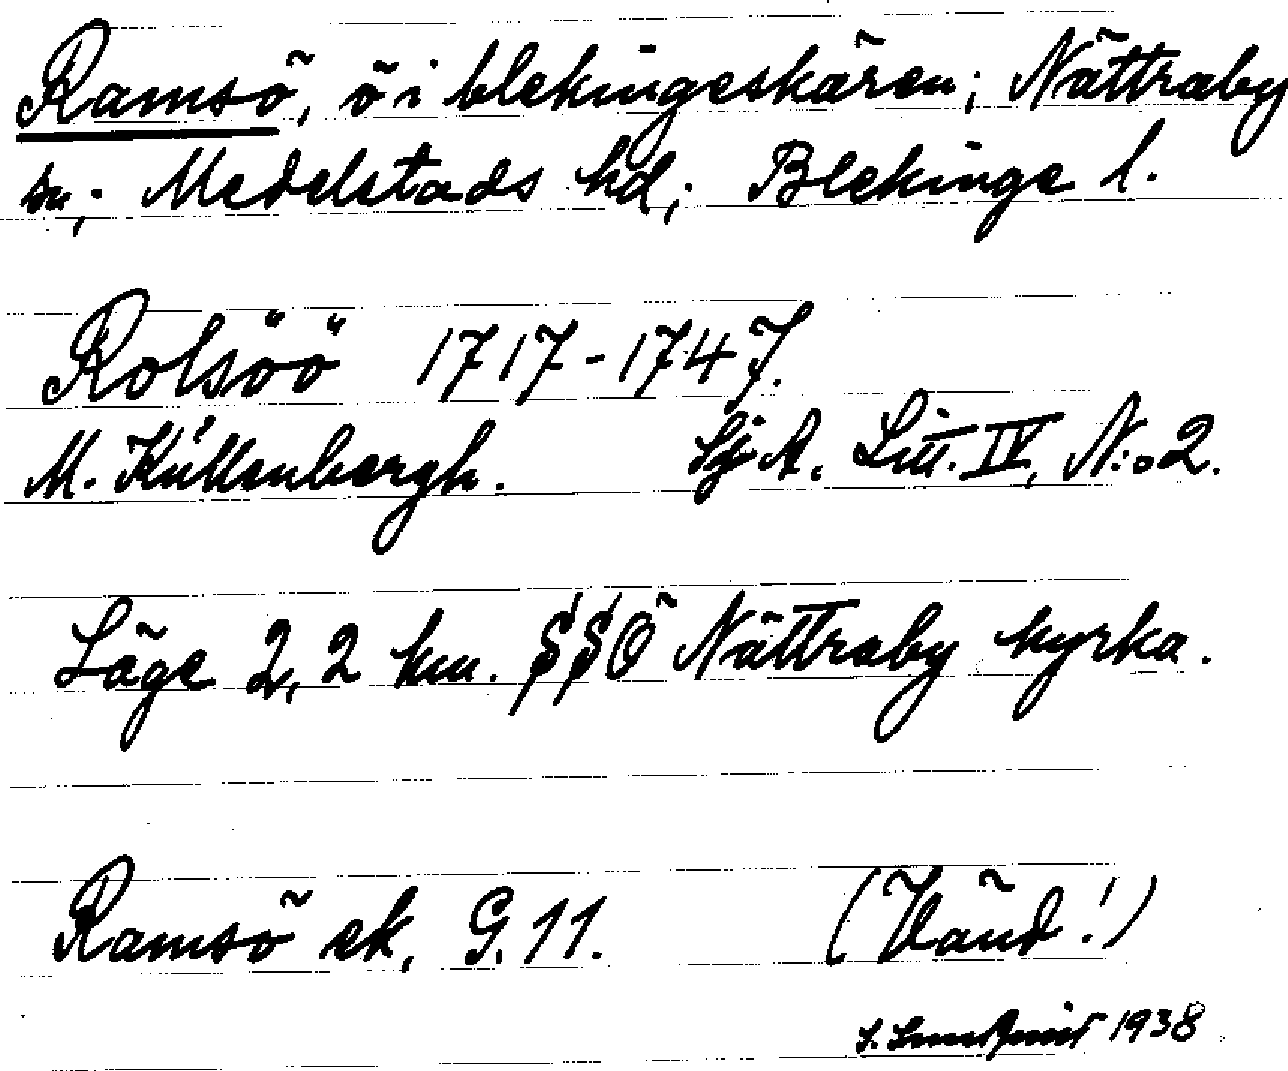 Ramsö, ö i blekingeskären; Nättraby
sn; Medelstads hd; Blekinge l.
Rolsöö 1717-1747.
M. Küllenbergh. Sj.A. Litt. IV, N:o 2.
Läge 2,2 km. SSÖ Nättraby kyrka.
Ramsö ek. G. 11. (Vänd!)
S. Lundqvist 1938